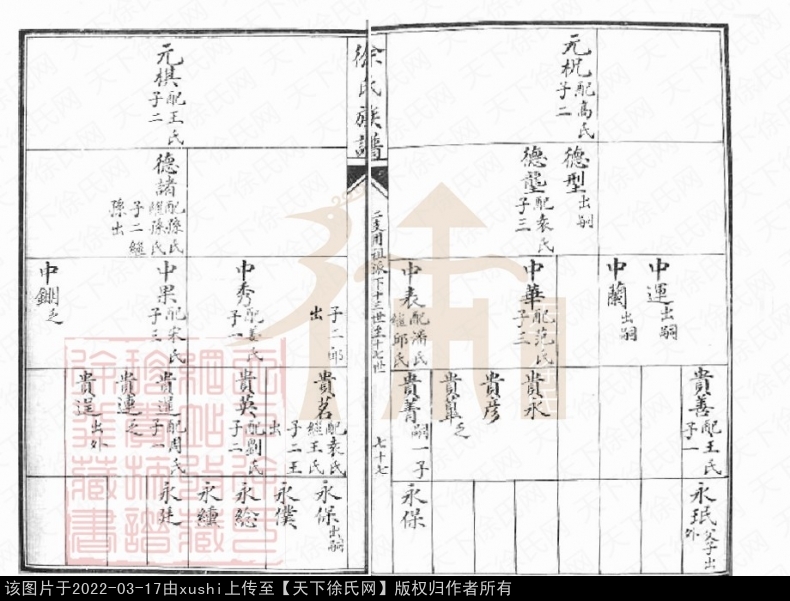 元机配高氏子二
德型出嗣
德壟配袁氏子三
中運出嗣
中蘭出嗣
中華配范氏子三
中表配潘氏繼邱氏
貴善配王氏子一
貴永
貴彥
貴篔乏
貴菁嗣一子
永珉父子出外
永保
徐氏族譜
二支用祖派下十三世至十七世
七十七
元棋配王氏子二
德諸配孫氏繼孫氏子二繼孫出
子二邱出
中秀配姜氏子一
中果配宋氏子三
中銚乏
貴茗配袁氏繼王氏子二王出
貴英配劉氏子二
貴運配周氏子一
貴連乏
貴逞出外
永保出嗣
永僕
永綸
永續
永廷
该图片于2022-03-17由xushi上传至【天下徐氏网】版权归作者所有